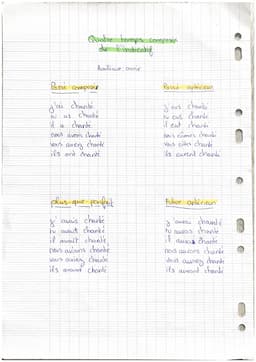 Quatre temps composer
de l'indicatif
Passé composer
j'ai chanté
tu as chanté
il a chanté
nous avons chanté
vous avez chanté
ils ont chanté
Passé antérieur
j'eus chanté
tu eus chanté
il eut chanté
nous eûmes chanté
vous eûtes chanté
ils eurent chanté
plus que parfait
j'avais chanté
tu avais chanté
il avait chanté
nous avions chanté
vous aviez chanté
ils avaient chanté
Futur antérieur
j'aurai chanté
tu auras chanté
il aura chanté
nous aurons chanté
vous aurez chanté
ils auront chanté